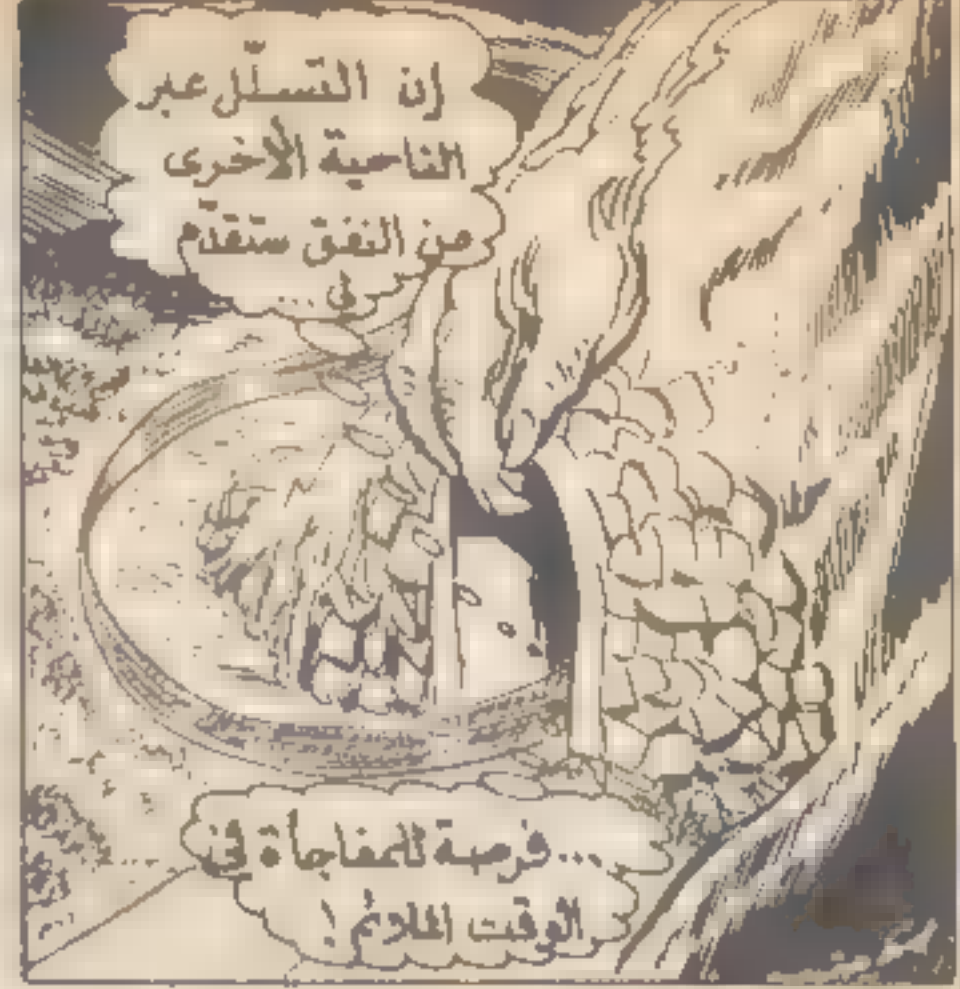 إن التسلّل عبر
الناحية الأخرى
من النفق ستقدّم
لي ...
... فرصة للمفاجأة في
الوقت الملائم !